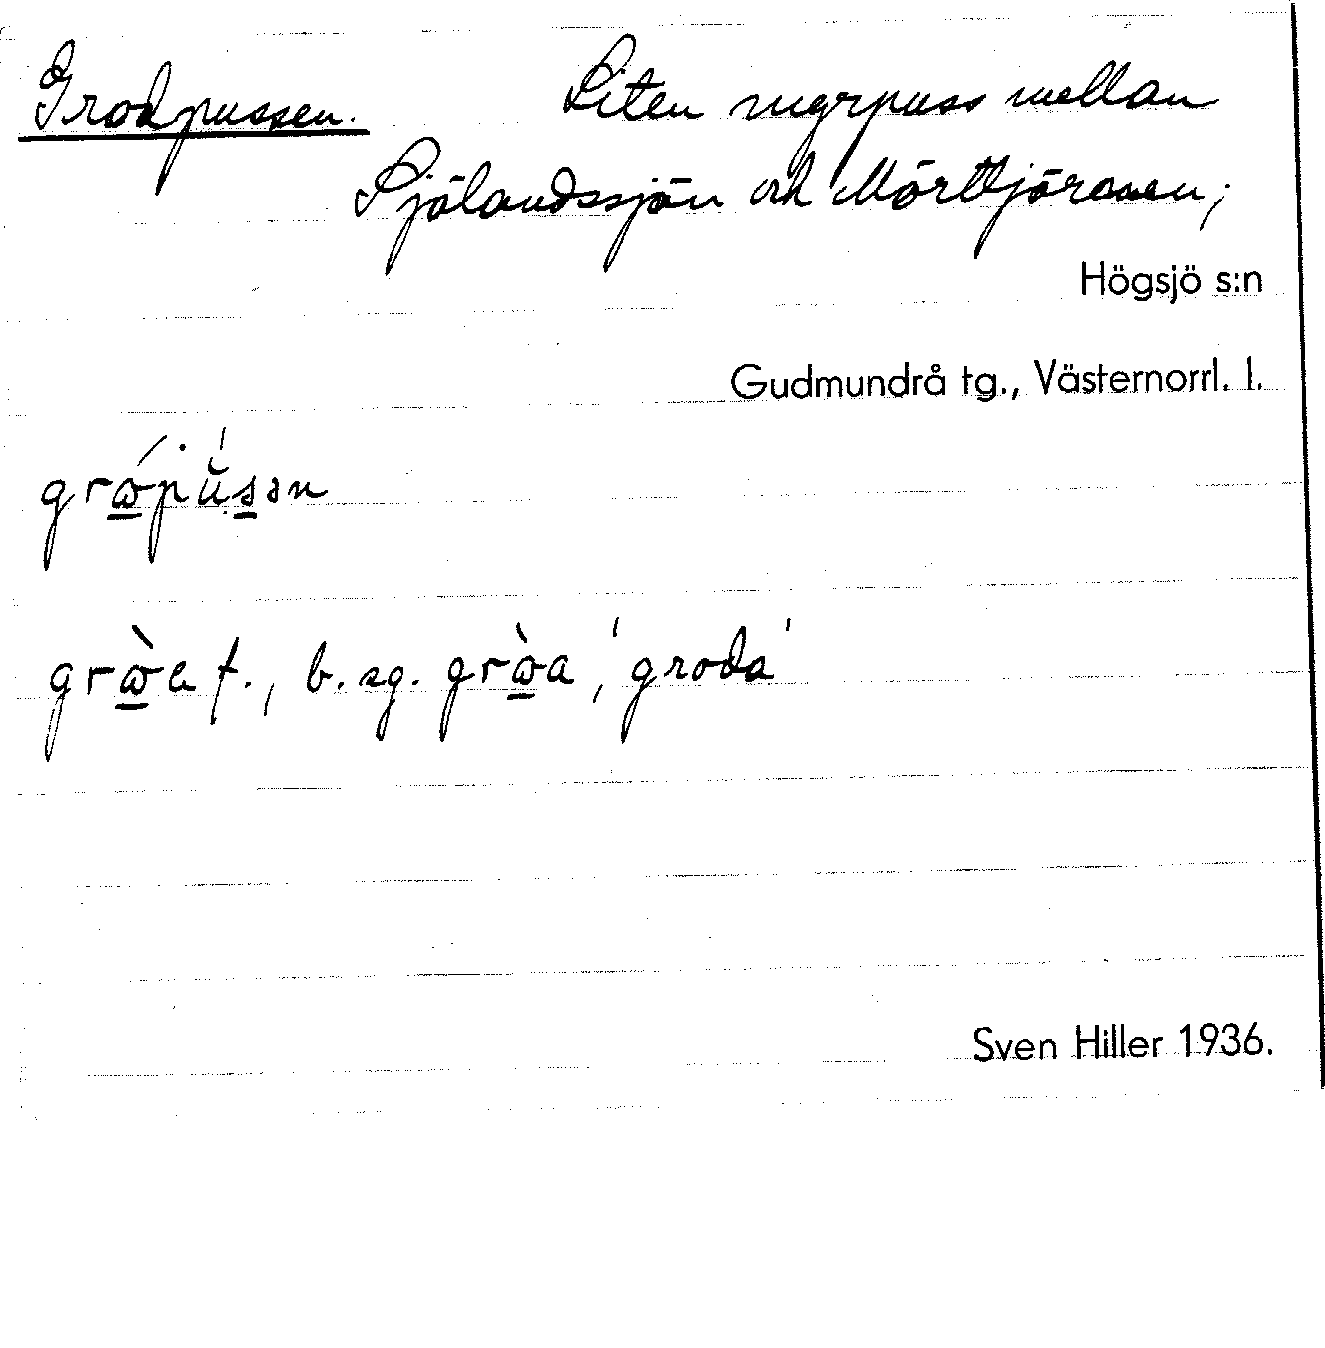 Grodpussen. Liten myrpuss mellan
Själandssjön och Mörttjärnen;
Högsjö s:n
Gudmundrå tg., Västernorrl. l.
grɷ́pu̇́sən
grɷ̀a f., b. sg. grɷ̀a, 'groda'
Sven Hiller 1936.